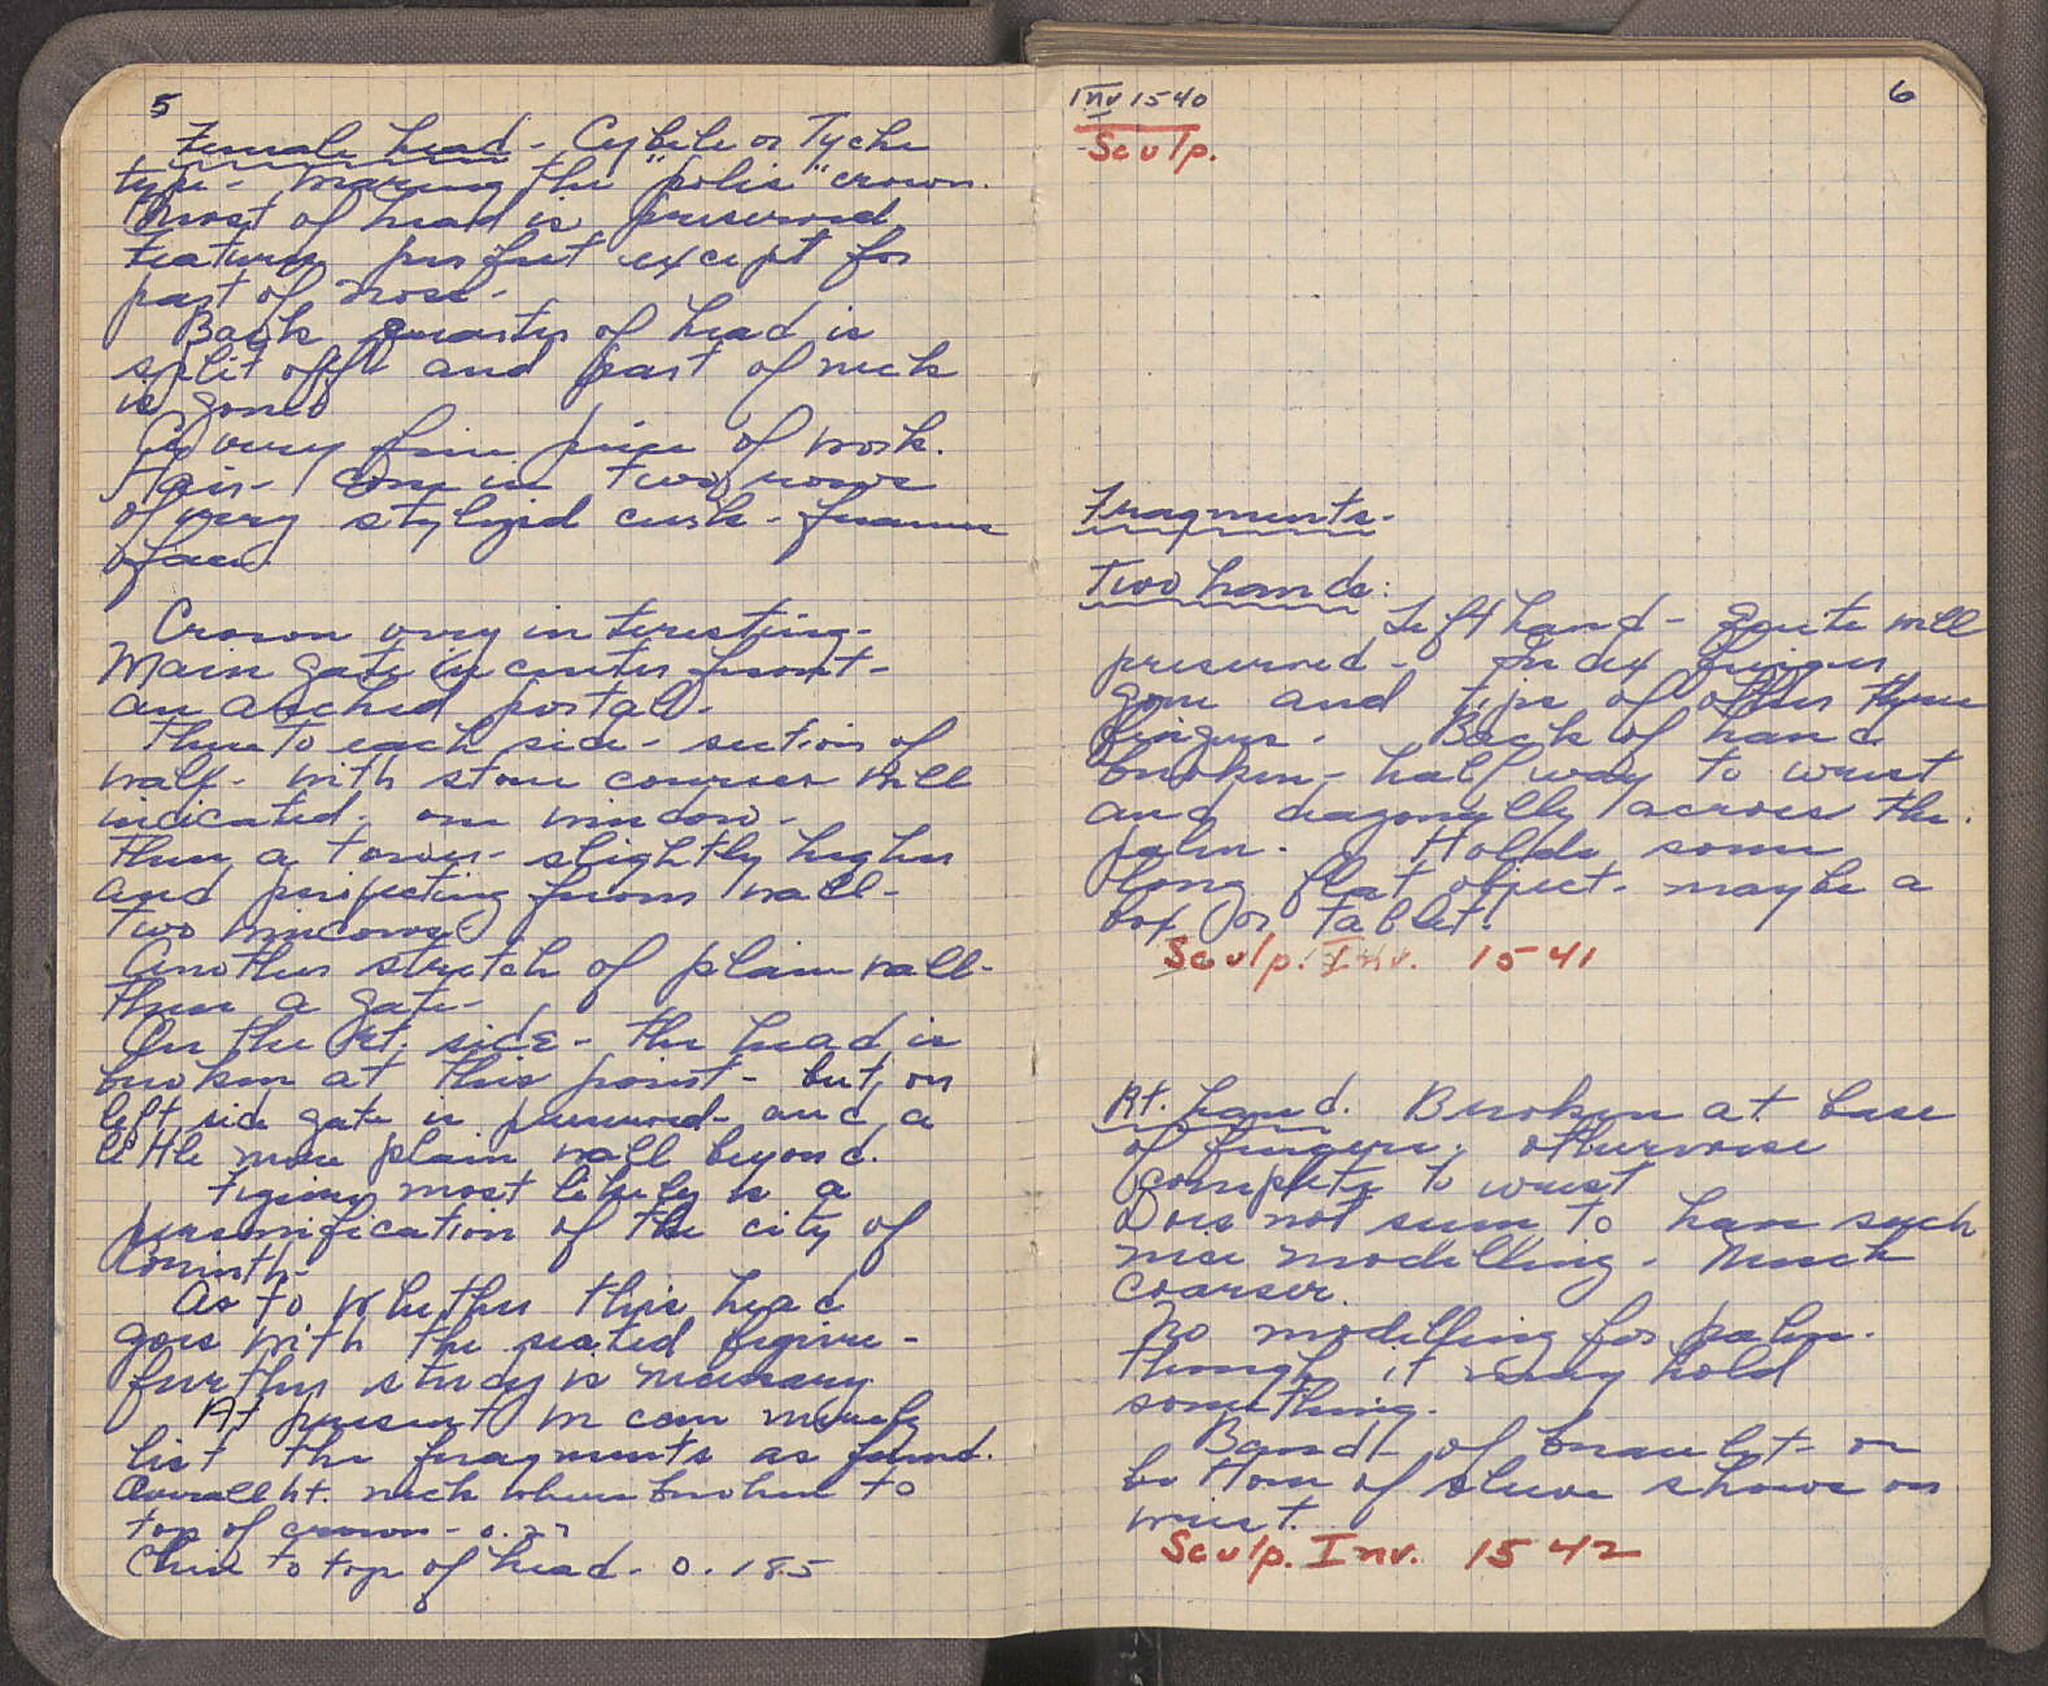 5
Female head - Cybele or Tyche
type - wearing the "polis" crown.
Most of head is preserved
Features perfect except for
part of nose -
Back quarter of head is
split off and part of neck
is gone
A very fine piece of work.
Hair - done in two rows
of very stylized curls - frames
face.
Crown very interesting -
Main gate in center front -
an arched portal -
Then to each side - section of
wall - with stone courses well
indicated. one window -
Then a tower - slightly higher
and projecting from wall -
two windows
Another stretch of plain wall -
then a gate -
On the Rt. side - the head is
broken at this point - but, on
left side gate is preserved - and a
little more plain wall beyond.
Figure most likely is a
personification of the city of
Corinth -
As to whether this head
goes with the seated figure -
further study is necessary
At present we can merely
list the fragments as found.
Overall ht. neck where broken to
top of crown - 0.27
Chin to top of head - 0.185
Inv 1540
Sculp.
6
Fragments -
Two hands:
Left hand - Quite well
preserved - Index finger
gone and tips of other three
fingers. Back of hand
broken - half way to wrist
and diagonally across the
palm. Holds some
long flat object - maybe a
box or tablet.
Sculp. Inv. 1541
Rt. hand. Broken at base
of fingers. otherwise
complete to wrist
Does not seem to have such
nice modelling. Much
coarser.
No modelling for palm -
though it may hold
something.
Band of bracelet - or
bottom of sleeve shows on
wrist.
Sculp. Inv. 1542